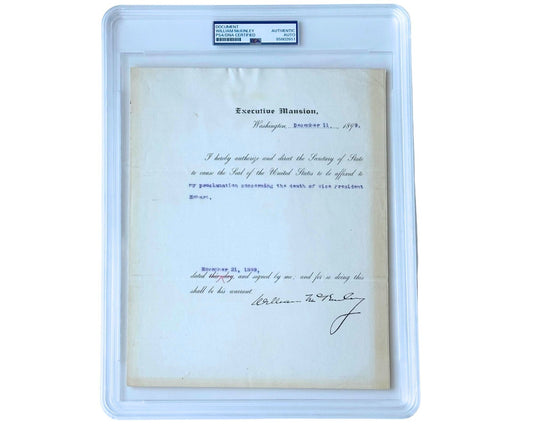 DOCUMENT
WILLIAM McKINLEY
PSA/DNA CERTIFIED
AUTHENTIC
AUTO
Executive Mansion,
Washington, December 11, 1899.
I hereby authorize and direct the Secretary of State
to cause the Seal of the United States to be affixed to
my proclamation concerning the death of vice President
Hobart.
November 21, 1899,
dated this day, and signed by me, and for so doing this
shall be his warrant.
William McKinley